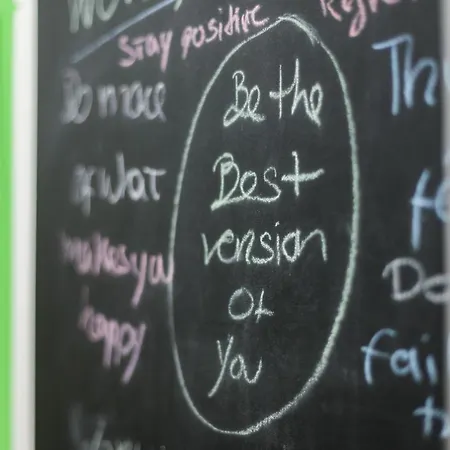 Stay positive
Do more
of wat
makes you
happy
Be the
Best
version
Of
You
Do
fai